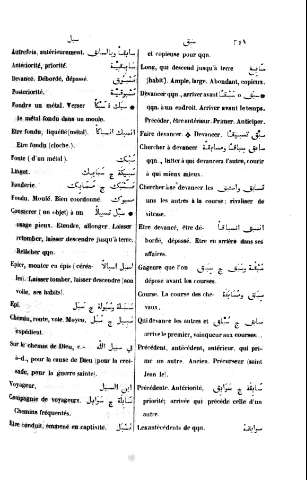 سبق
سبل
et copieuse pour qqn.
Long, qui descend jusqu'à terre سَابِغ
(habit). Ample, large. Abondant, copieux.
Devancer qqn, arriver avant سبق
qqn. à un endroit. Arriver avant le temps.
Précéder, être antérieur. Primer. Anticiper.
Faire devancer. Devancer. سبّق تسبيقًا
Chercher à devancer سابق سباقًا ومسابقة
qqn., lutter à qui devancera l'autre, courir
à qui mieux mieux.
Chercher à se devancer les
uns les autres à la course; rivaliser de
vitesse.
Etre devancé, être dé- انسبق انسباقًا
bordé, déposé. Etre en arrière dans ses
affaires.
Gageure que l'on
dépose avant les courses.
Course. La course des che-
vaux.
Qui devance les autres et سابق
arrive le premier, vainqueur aux courses.
Précédent, antécédent, antérieur, qui pri-
me un autre. Ancien. Précurseur (saint
Jean le).
Précédente. Antériorité, سابقة ج سوابق
priorité; arrivée qui précède celle d'un
autre.
Les antécédents de qqn. سوابقه
Autrefois, antérieurement. سابقًا وبالسابق
Antériorité, priorité. سابقيّة
Devancé. Débordé, dépassé. مسبوق
Posteriorité. مسبوقيّة
Fondre un métal. Verser سبك سبكًا
le métal fondu dans un moule.
Etre fondu, liquéfié (métal). انسبك انسباكًا
Etre fondu (cloche).
Fonte (d'un métal). سبك
Lingot. سبيكة ج سبائك
Fonderie. مسبك ج مسابك
Fondu. Moulé. Bien coordonné مسبوك
Consacrer (un objet) à un سبّل تسبيلًا
usage pieux. Etendre, allonger. Laisser
retomber, laisser descendre jusqu'à terre.
Relâcher qqn.
Epier, monter en épis (céréa- اسبل اسبالًا
les). Laisser tomber, laisser descendre (son
voile, ses habits).
Epi. سبلة
Chemin, route, voie. Moyen, سبيل ج سبل
expédient.
Sur le chemen de Dieu, c.- في سبيل الله
à-d., pour la cause de Dieu (pour la croi-
sade, pour la guerre sainte).
Voyageur. ابن السبيل
Compagnie de voyageurs. سابلة ج سوابل
Chemins fréquentés.
Etre conduit, emmené en captivité.